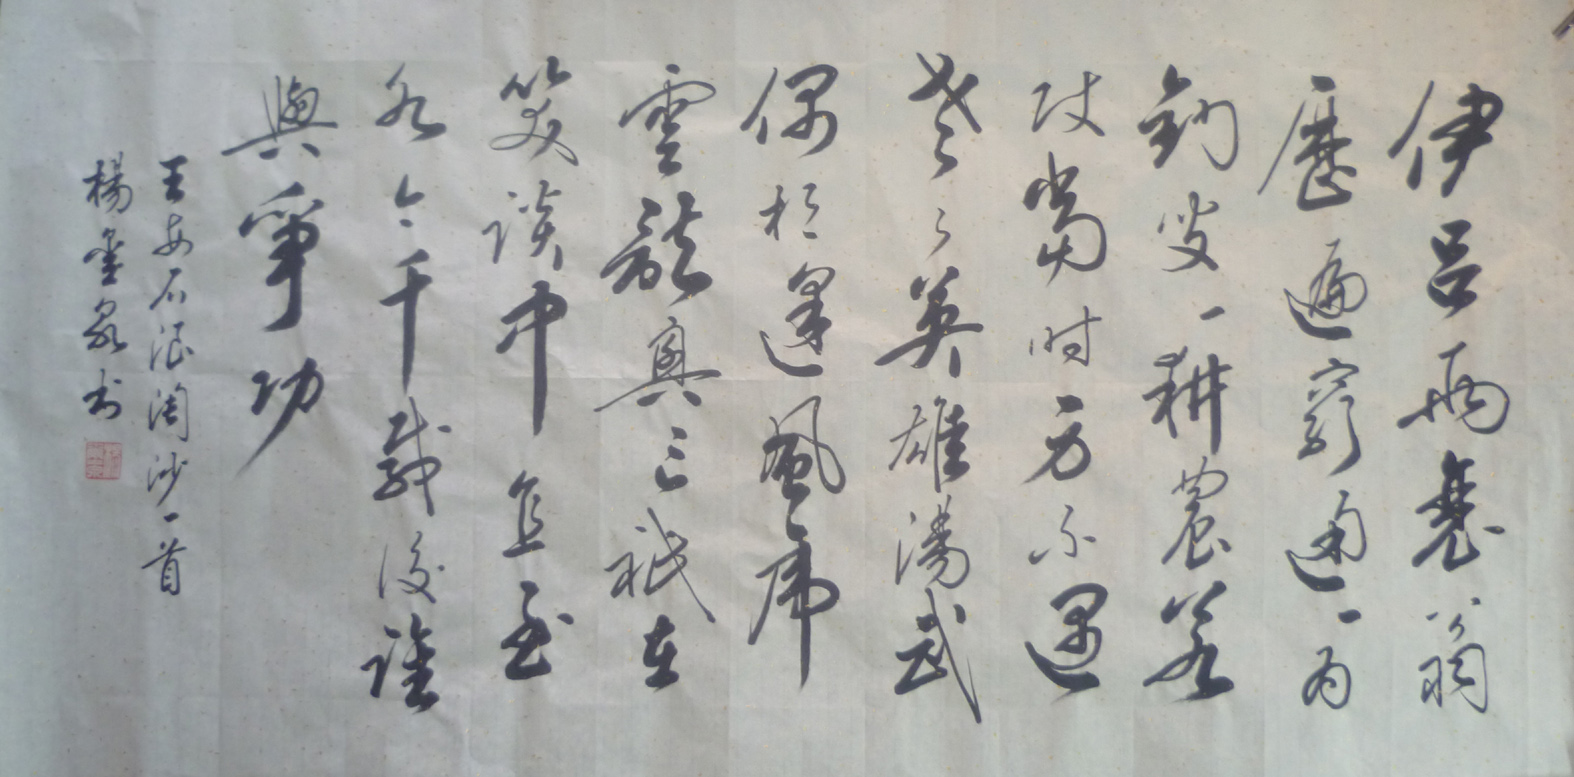 伊呂两衰翁
歷遍窮通一为
釣叟一耕農若
使當时身不遇
老了英雄湯武
偶相逢風虎
雲龍興亡祇在
笑談中直至
如今千載後誰
與爭功
王安石浪淘沙一首
楊金泉书